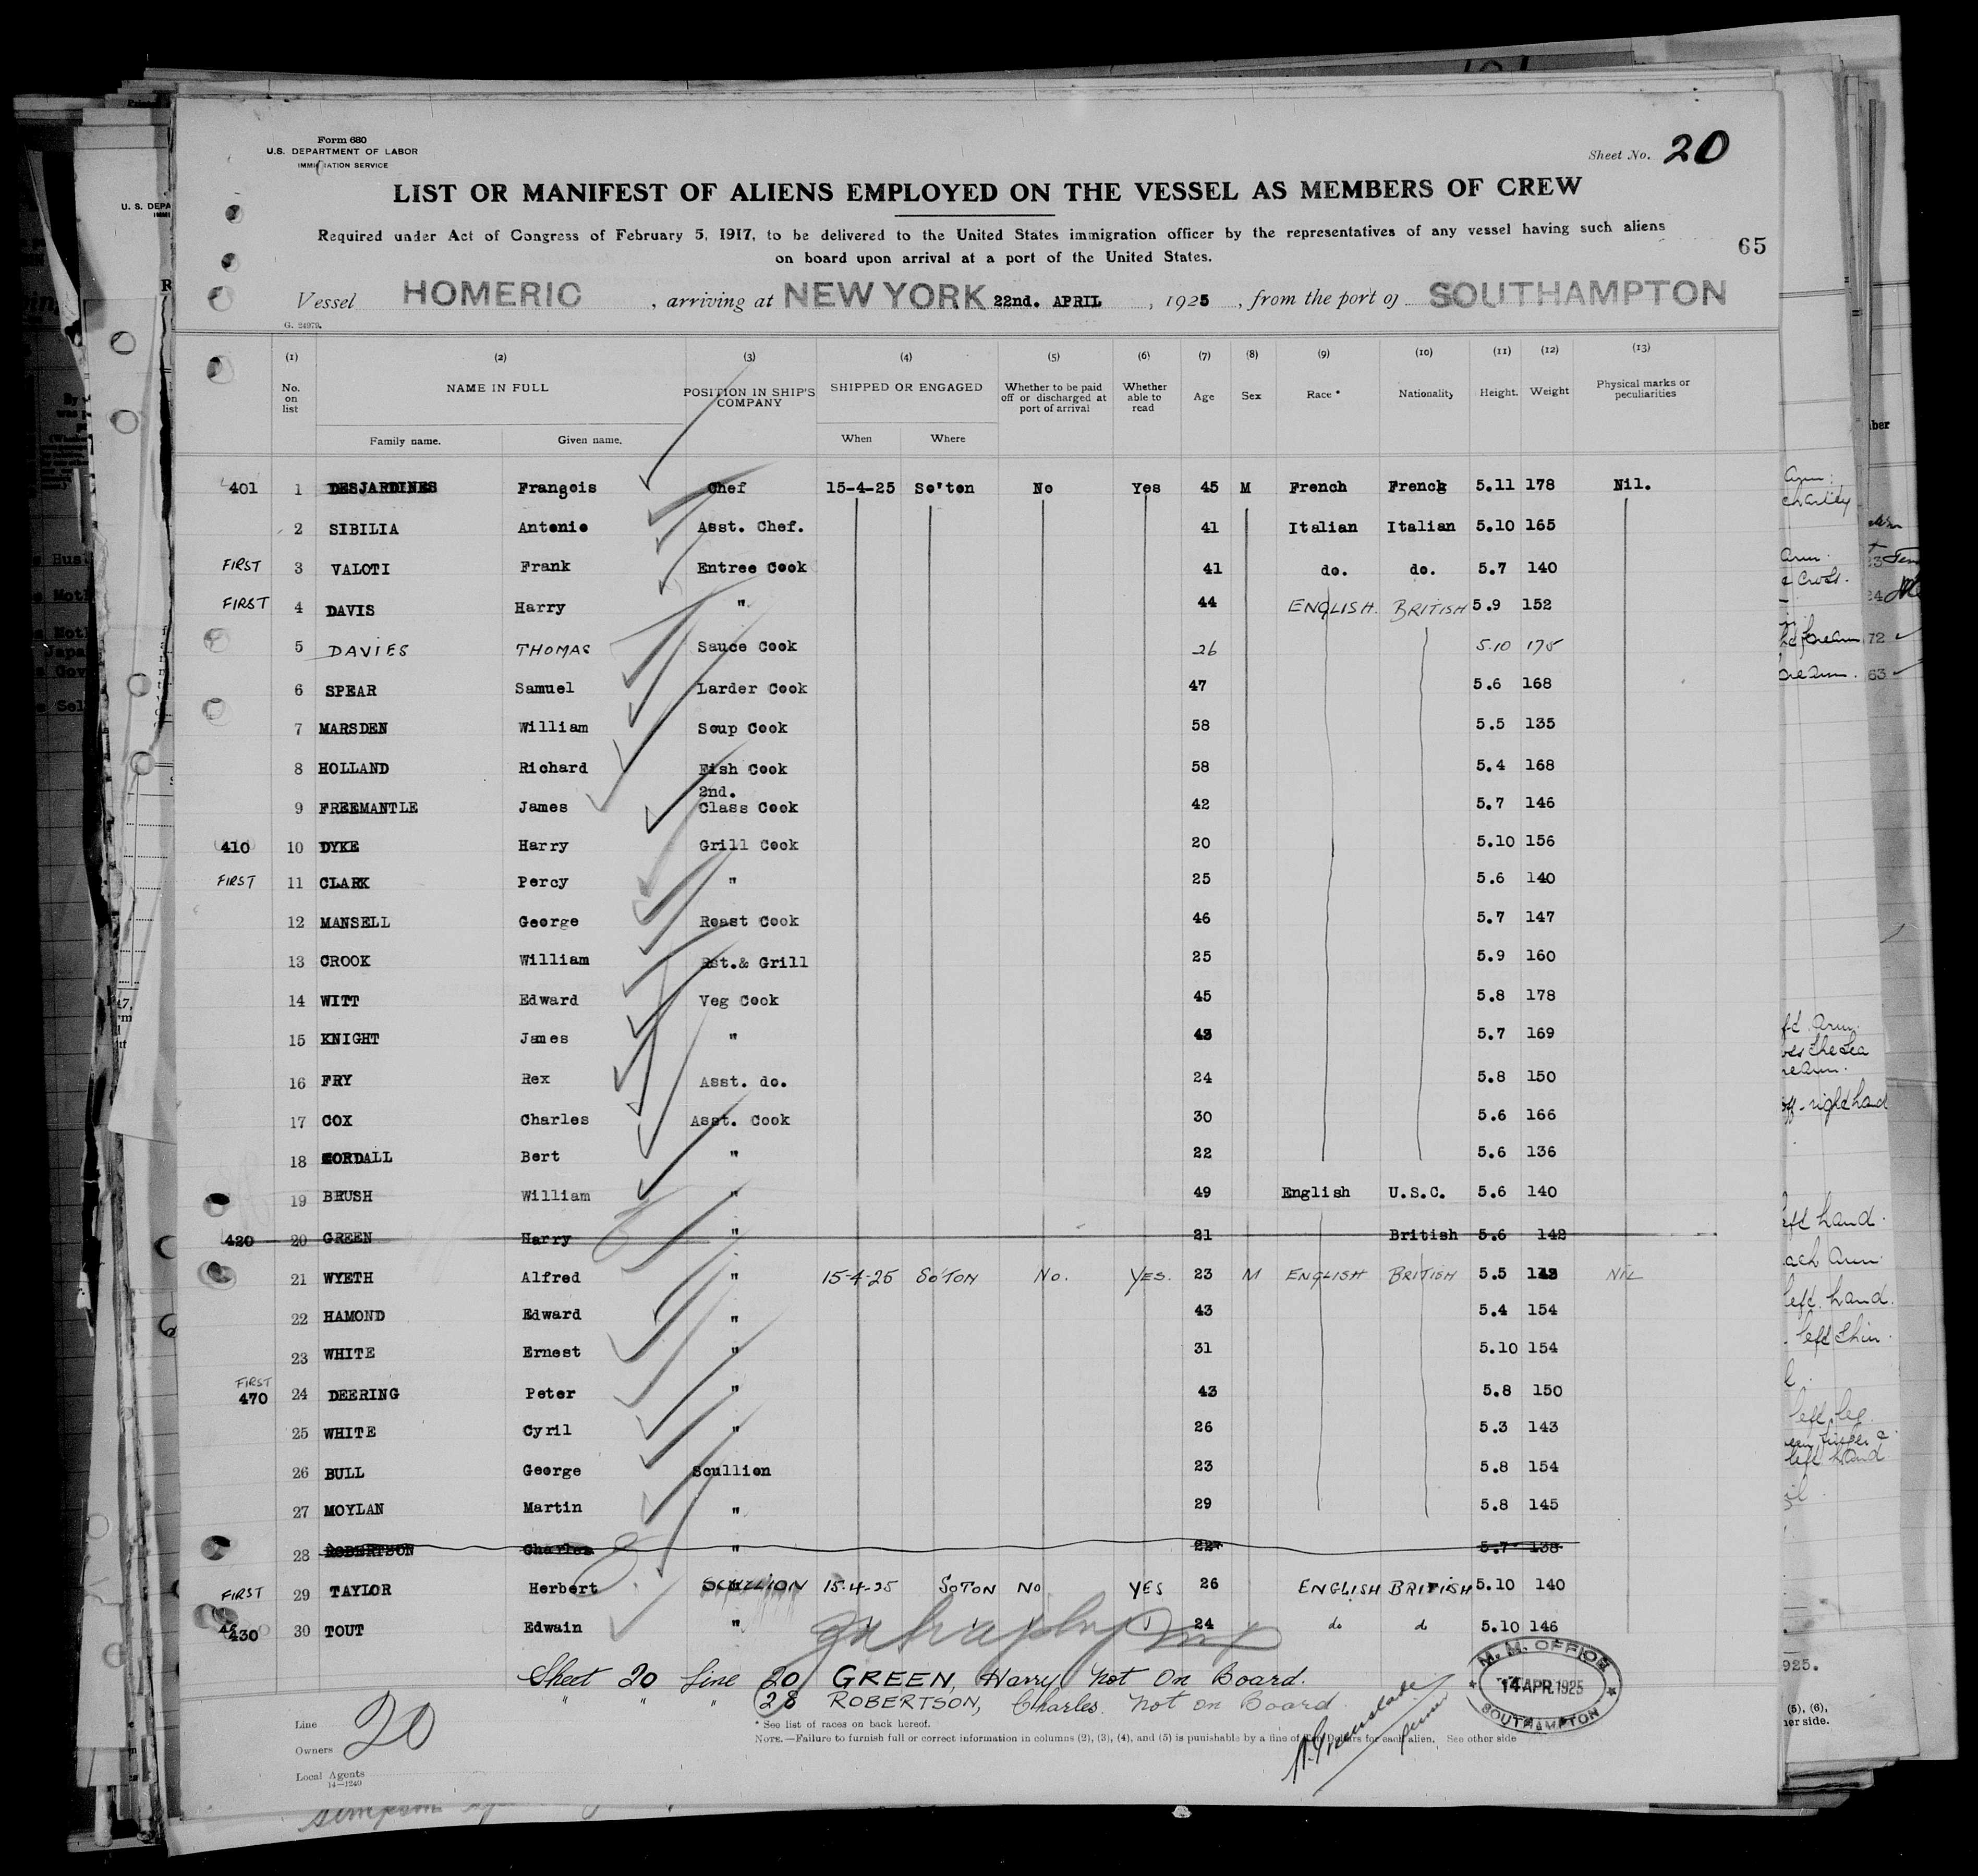 Form 680
U.S. DEPARTMENT OF LABOR
IMMIGRATION SERVICE
Sheet No. 20
LIST OR MANIFEST OF ALIENS EMPLOYED ON THE VESSEL AS MEMBERS OF CREW
Required under Act of Congress of February 5, 1917, to be delivered to the United States immigration officer by the representatives of any vessel having such aliens
on board upon arrival at a port of the United States.
65
Vessel HOMERIC, arriving at NEW YORK 22nd. APRIL, 1925, from the port of SOUTHAMPTON
G. 24979.
(1) (2) (3) (4) (5) (6) (7) (8) (9) (10) (11) (12) (13)
No. on list NAME IN FULL POSITION IN SHIP'S COMPANY SHIPPED OR ENGAGED Whether to be paid off or discharged at port of arrival Whether able to read Age Sex Race * Nationality Height. Weight Physical marks or peculiarities
Family name. Given name. When Where
401 1 DESJARDINES François Chef 15-4-25 So'ton No Yes 45 M French French 5.11 178 Nil.
2 SIBILIA Antonio Asst. Chef. 41 Italian Italian 5.10 165
FIRST 3 VALOTI Frank Entree Cook 41 do. do. 5.7 140
FIRST 4 DAVIS Harry " 44 ENGLISH. BRITISH 5.9 152
5 DAVIES THOMAS Sauce Cook 26 5.10 175
6 SPEAR Samuel Larder Cook 47 5.6 168
7 MARSDEN William Soup Cook 58 5.5 135
8 HOLLAND Richard Fish Cook 58 5.4 168
9 FREEMANTLE James 2nd. Class Cook 42 5.7 146
410 10 DYKE Harry Grill Cook 20 5.10 156
FIRST 11 CLARK Percy " 25 5.6 140
12 MANSELL George Roast Cook 46 5.7 147
13 CROOK William Rst.& Grill 25 5.9 160
14 WITT Edward Veg Cook 45 5.8 178
15 KNIGHT James " 43 5.7 169
16 FRY Rex Asst. do. 24 5.8 150
17 COX Charles Asst. Cook 30 5.6 166
18 CORDALL Bert " 22 5.6 136
19 BRUSH William " 49 English U.S.C. 5.6 140
420 20 GREEN Harry " 21 British 5.6 142
21 WYETH Alfred " 15-4-25 SO'TON No. YES. 23 M ENGLISH BRITISH 5.5 NIL
22 HAMOND Edward " 43 5.4 154
23 WHITE Ernest " 31 5.10 154
FIRST
470 24 DEERING Peter " 43 5.8 150
25 WHITE Cyril " 26 5.3 143
26 BULL George Scullion 23 5.8 154
27 MOYLAN Martin " 29 5.8 145
28 ROBERTSON Charles " 22 5.7 138
FIRST 29 TAYLOR Herbert SCULLION 15-4-25 SOTON NO YES 26 ENGLISH BRITISH 5.10 140
430 30 TOUT Edwain " 24 do d 5.10 146
Sheet 20 Line 20 GREEN, Harry Not On Board.
" " " 28 ROBERTSON, Charles. Not on Board
M. M. OFFICE
14 APR. 1925
SOUTHAMPTON
* See list of races on back hereof.
NOTE.—Failure to furnish full or correct information in columns (2), (3), (4), and (5) is punishable by a fine of Ten Dollars for each alien. See other side
Line
20
Owners
Local Agents
14—1240